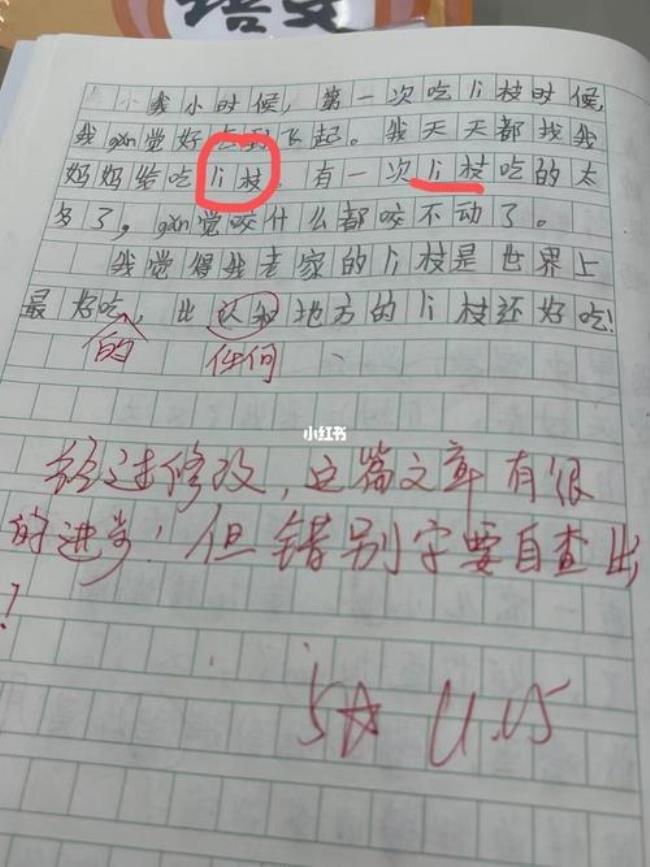 语文
我小时候，第一次吃li枝时候，
我gǎn觉好吃到飞起。我天天都找我
妈妈给吃li枝。有一次li枝吃的太
多了，gǎn觉咬什么都咬不动了。
我觉得我老家的li枝是世界上
最好吃，比认和地方的li枝还好吃！
的 任何
小红书
经过修改，这篇文章有很
的进步！但错别字要自查出
！
5☆ 11.05